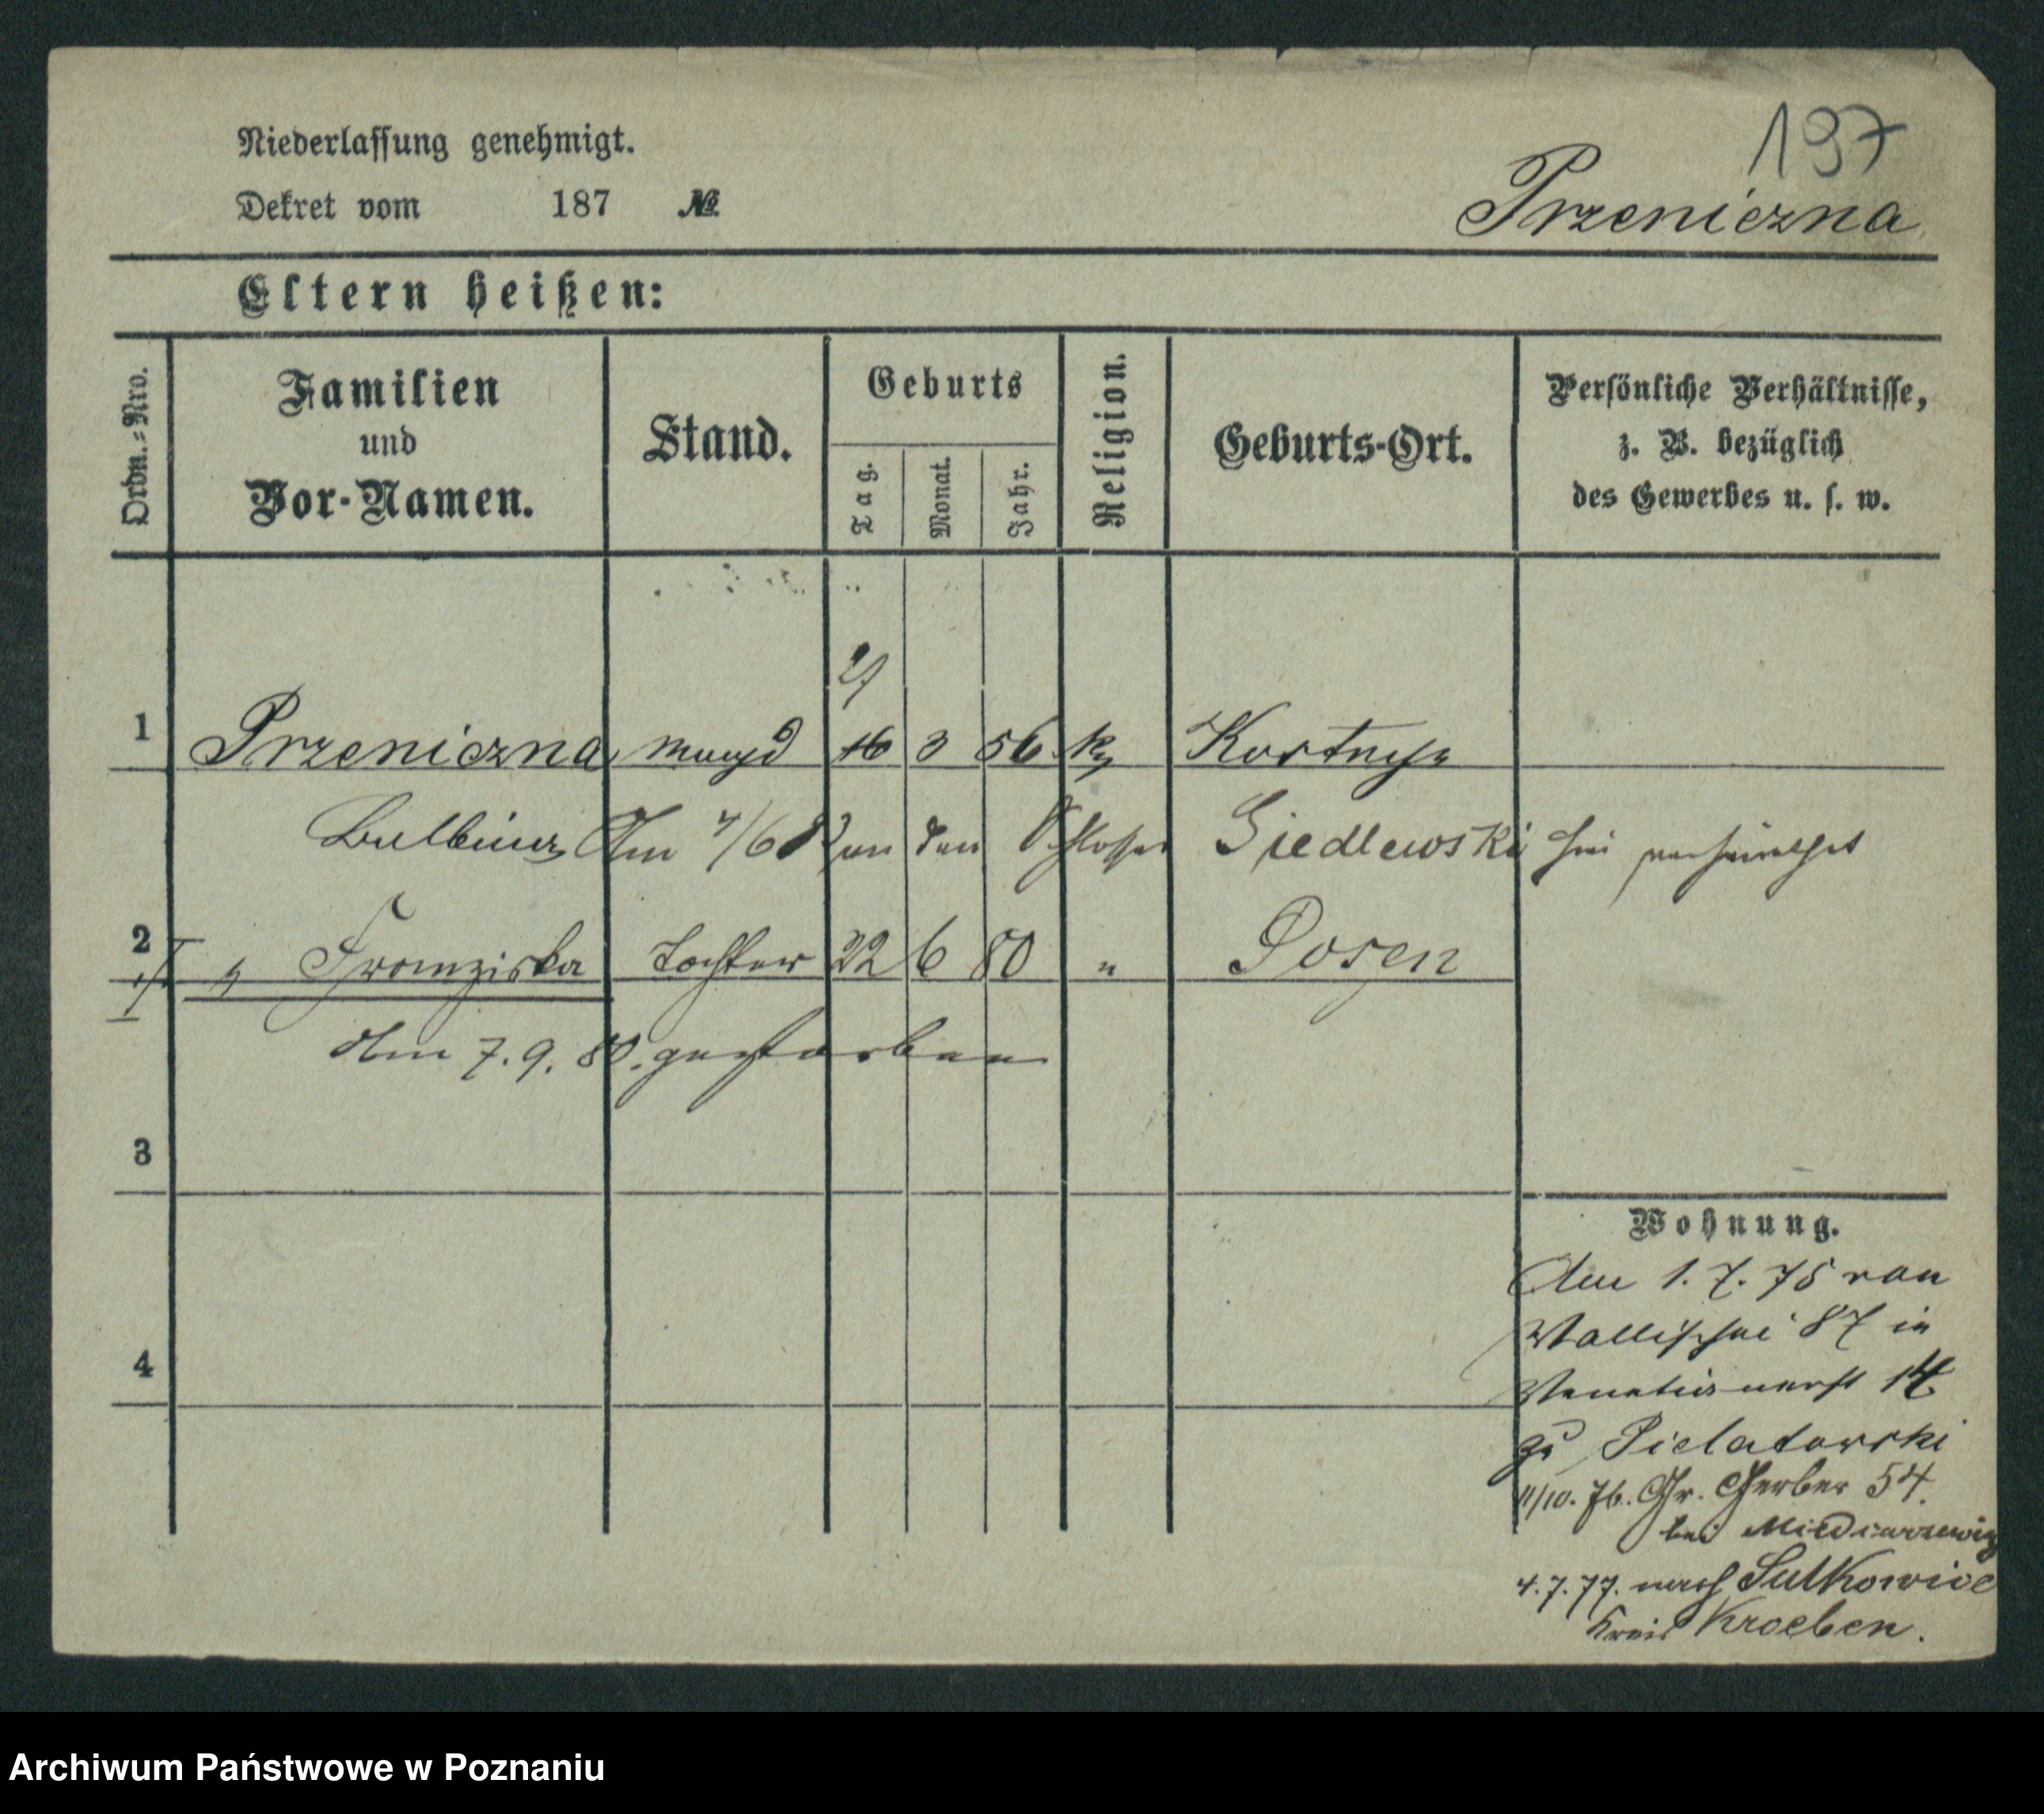 197
Niederlassung genehmigt.
Dekret vom 187 №
Przeniczna
Eltern heißen:
Ordn.-Nro.
Familien und Vor-Namen.
Stand.
Geburts
Tag.
Monat.
Jahr.
Religion.
Geburts-Ort.
Persönliche Verhältnisse,
z. B. bezüglich
des Gewerbes u. s. w.
1 Przeniczna Magd 16 3 56 k
Balbina Am an den Schlosser Siedlewski hier verheirathet
2 " Franziska Tochter 22 6 80 " Posen
Am 7. 9. 80. gestorben
3
Wohnung.
Am 1. 7. 75 von
Wallischei 87 in
14
4
zu Pielatowski
11/10. 76. Gr. Gerber 54.
bei
4. 7. 77. nach Sulkowice
Kreis Kroeben.
Archiwum Państwowe w Poznaniu